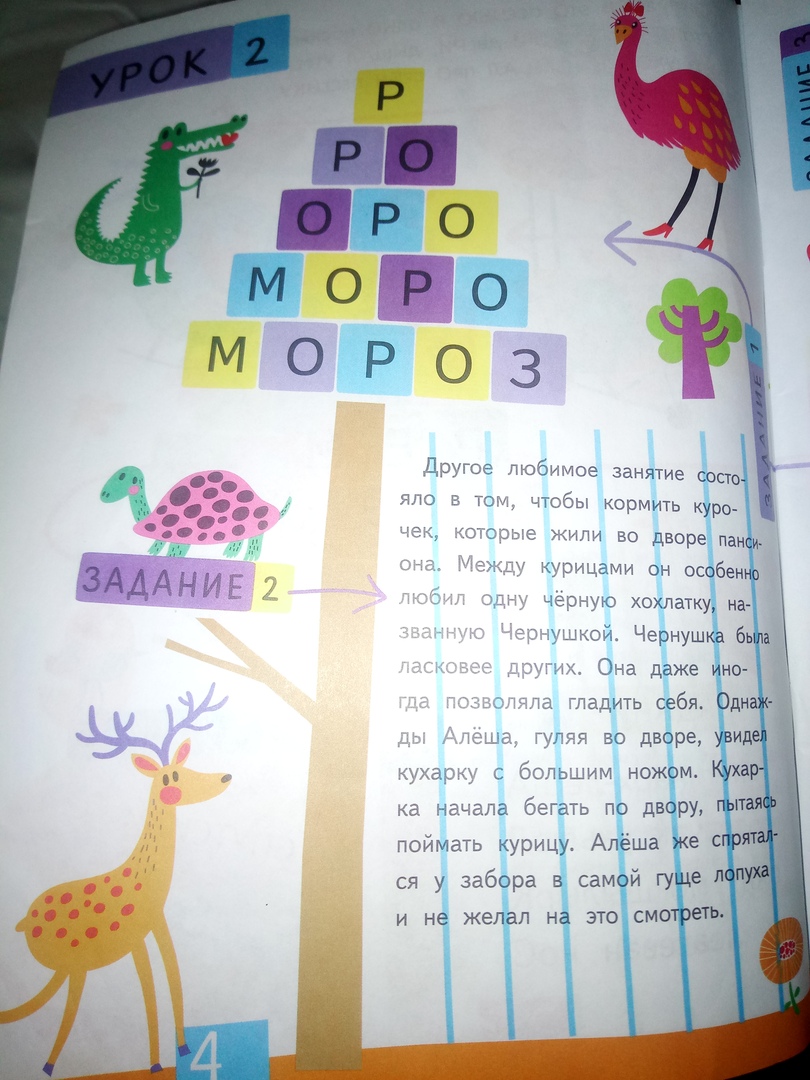 УРОК 2
Р
РО
ОРО
МОРО
МОРОЗ
ЗАДАНИЕ 1
ЗАДАНИЕ 3
Другое любимое занятие состо-
яло в том, чтобы кормить куро-
чек, которые жили во дворе панси-
она. Между курицами он особенно
любил одну чёрную хохлатку, на-
званную Чернушкой. Чернушка была
ласковее других. Она даже ино-
гда позволяла гладить себя. Однаж-
ды Алёша, гуляя во дворе, увидел
кухарку с большим ножом. Кухар-
ка начала бегать по двору, пытаясь
поймать курицу. Алёша же спрятал-
ся у забора в самой гуще лопуха
и не желал на это смотреть.
ЗАДАНИЕ 2
4